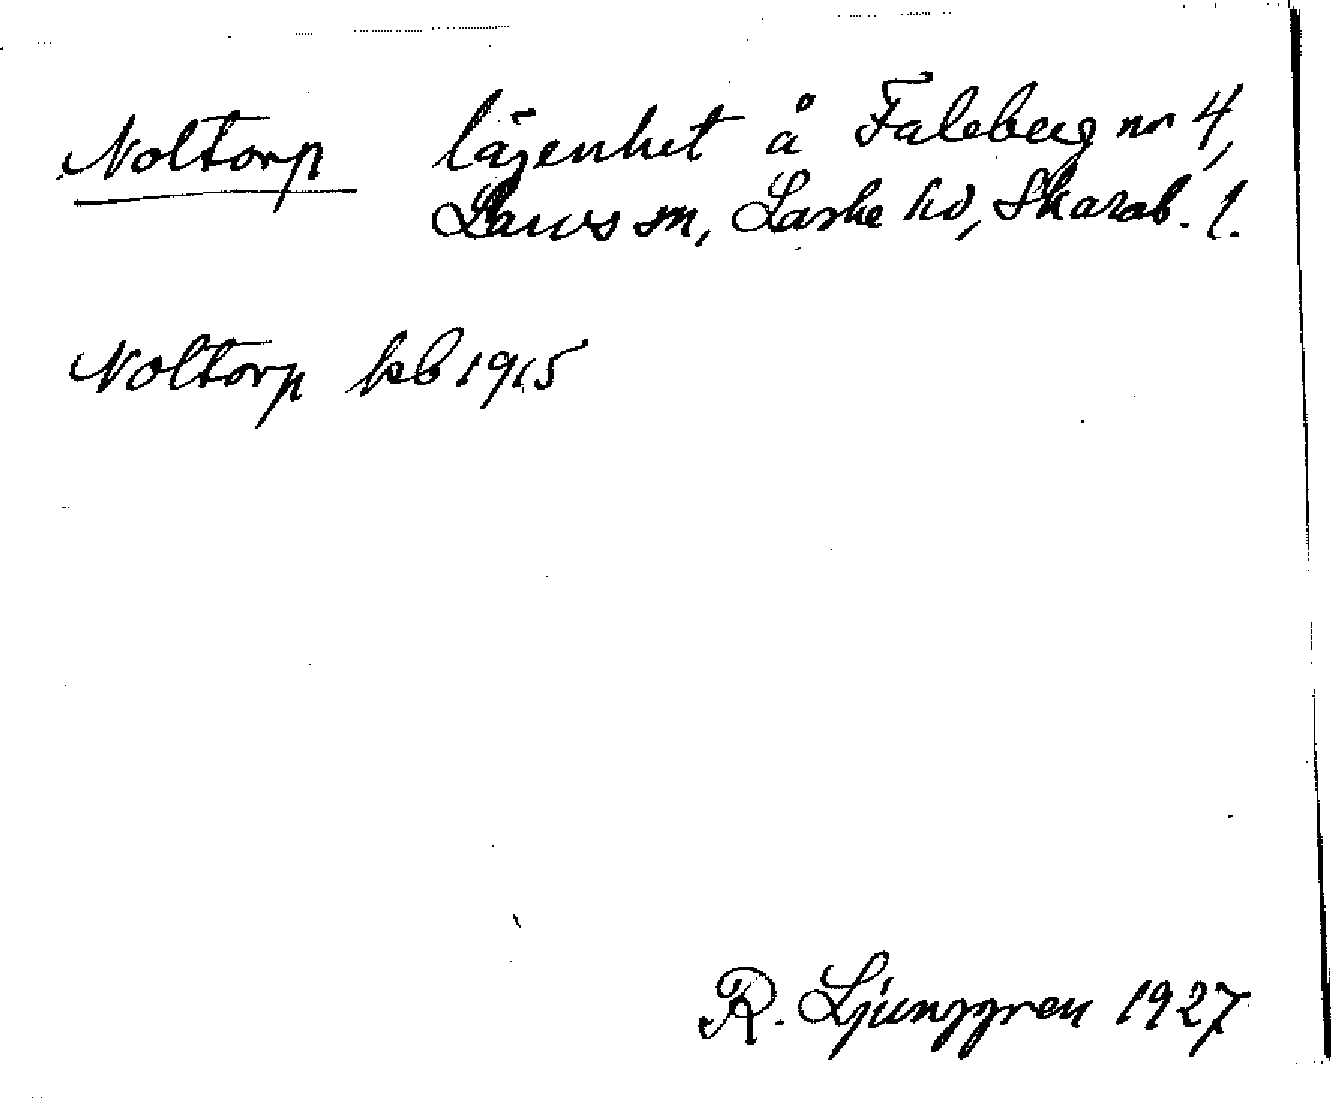 Noltorp lägenhet å Faleberg nr 4,
Laws sn, Laske hd, Skarab. l.
Noltorp kb 1915
R. Ljunggren 1927